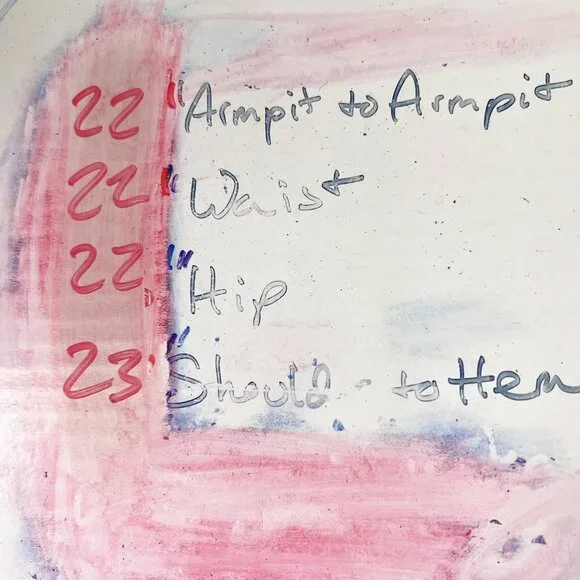 22 "Armpit to Armpit
22 "Waist
22 "Hip
23 "Should to Hem